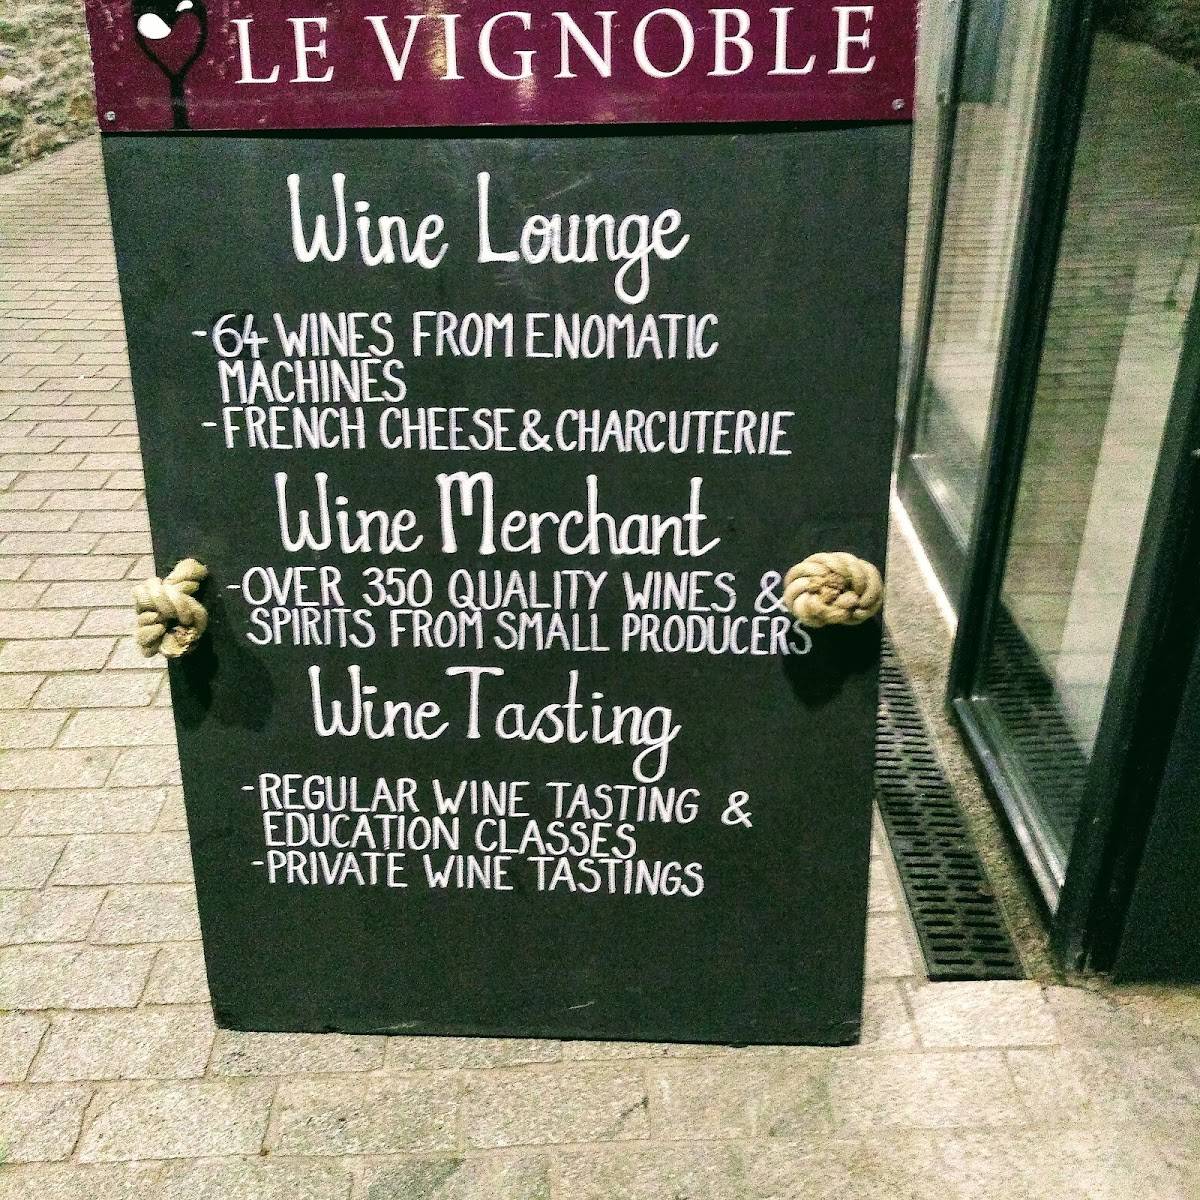 LE VIGNOBLE
Wine Lounge
-64 WINES FROM ENOMATIC
MACHINES
-FRENCH CHEESE & CHARCUTERIE
Wine Merchant
-OVER 350 QUALITY WINES &
SPIRITS FROM SMALL PRODUCERS
Wine Tasting
-REGULAR WINE TASTING &
EDUCATION CLASSES
-PRIVATE WINE TASTINGS